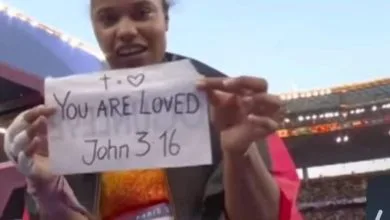 † · ♡
YOU ARE LOVED
John 3 16